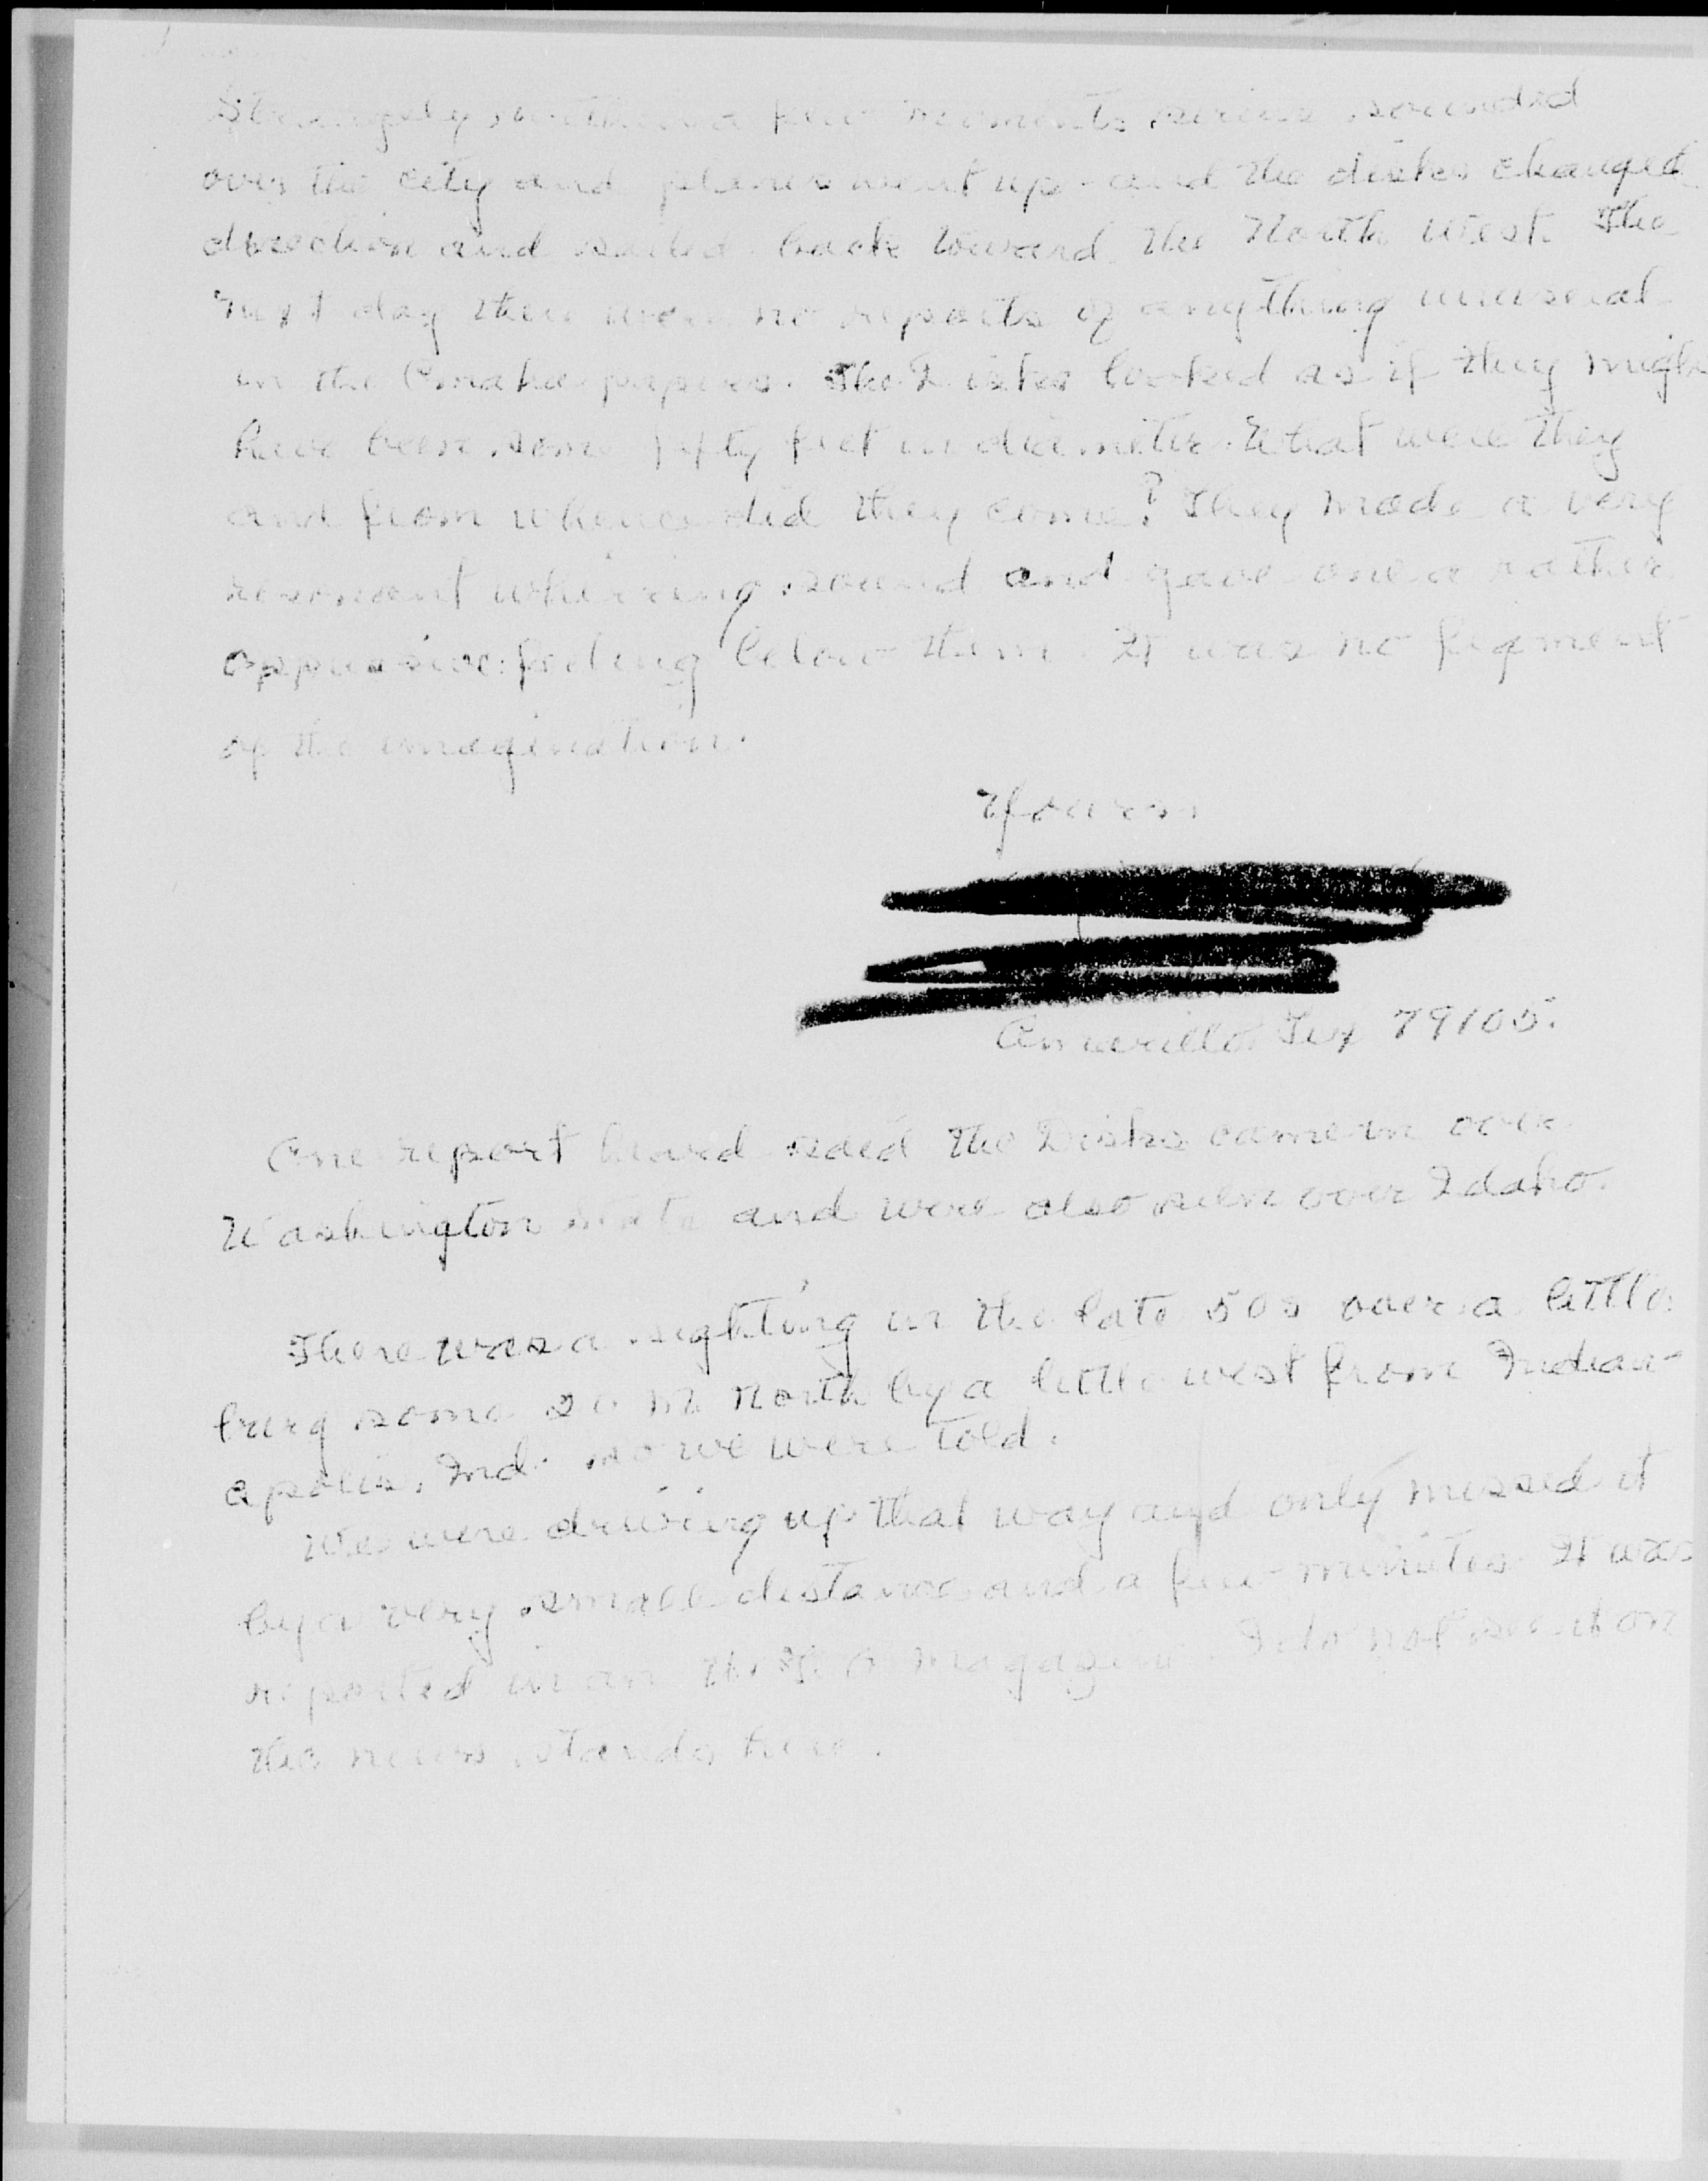 Strangely, within a few moments sirens sounded
over the city and planes went up - and the disks changed
direction and sailed back toward the North West. The
next day there were no reports of anything unusual
in the Omaha papers. The Disks looked as if they migh
have been some fifty feet in diameter. What were they
and from whence did they come? They made a very
resonant whirring sound and gave one a rather
oppressive feeling below them. It was no figment
of the imagination.
Yours
Amarillo Tex 79105.
One report heard said the Disks came in over
Washington State and were also seen over Idaho.
There was a sighting in the late 50s over a little
burg some 20 m north by a little west from Indian-
apolis, Ind. so we were told.
We were driving up that way and only missed it
by a very small distance and a few minutes. It was
reported in an magazine. I do not see it on
the news stands here.